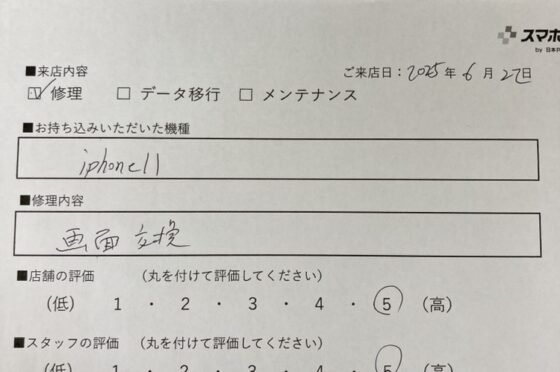 スマホ
by 日本P
■来店内容 ご来店日：2025年 6月 27日
☑ 修理 □ データ移行 □ メンテナンス
■お持ち込みいただいた機種
iphone11
■修理内容
画面 交換
■店舗の評価 （丸を付けて評価してください）
（低） 1 ・ 2 ・ 3 ・ 4 ・ 5 （高）
■スタッフの評価 （丸を付けて評価してください）
（低） 1 ・ 2 ・ 3 ・ 4 ・ 5 （高）